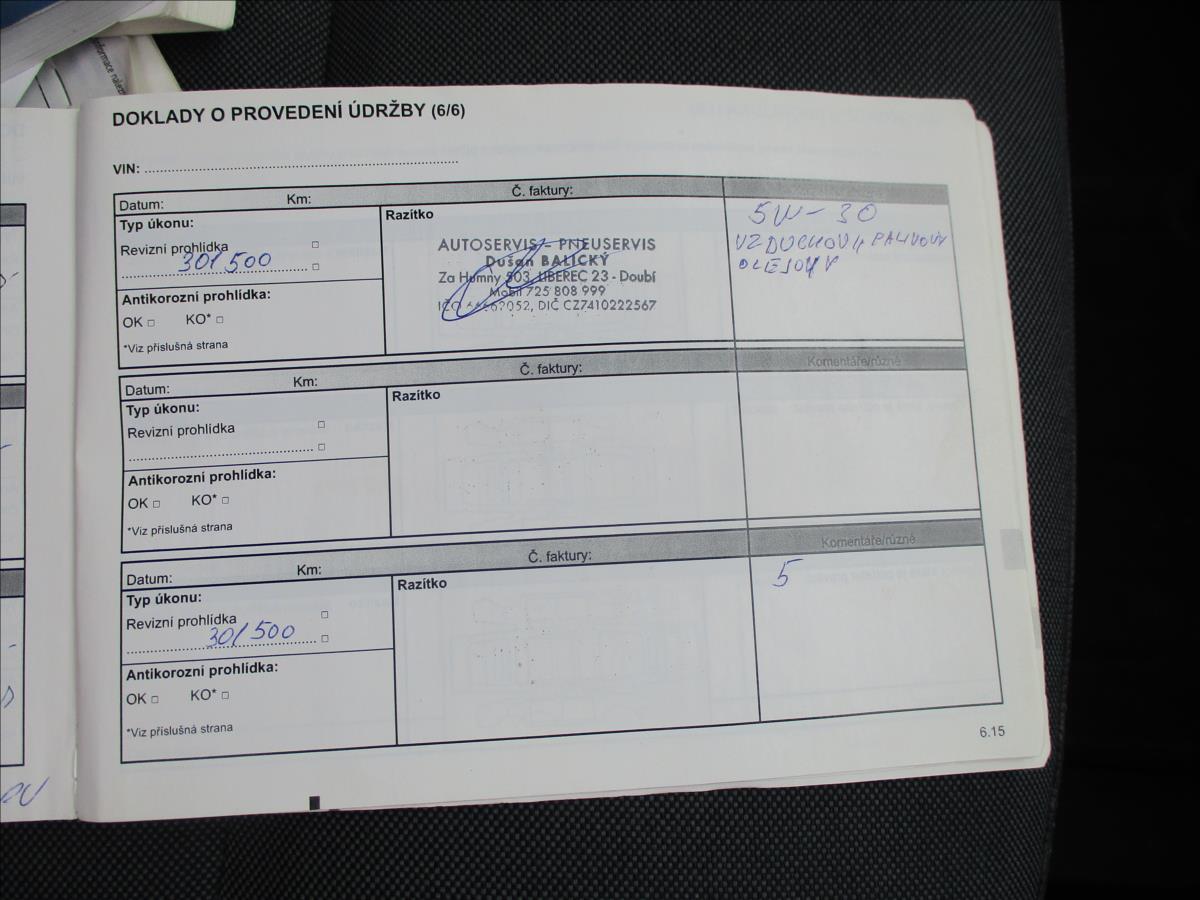 informace nalez
DOKLADY O PROVEDENÍ ÚDRŽBY (6/6)
VIN: ........................................................................................
Datum: Km: Č. faktury:
Typ úkonu:
Revizní prohlídka □
301 500 □
Antikorozní prohlídka:
OK □ KO* □
*Viz příslušná strana
Razítko
AUTOSERVIS - PNEUSERVIS
Dušan BALICKÝ
Za Humny 503, LIBEREC 23 - Doubí
Mobil 725 808 999
IČO 052, DIČ CZ7410222567
5W-30
VZDUCHOVÝ PALIVOVÝ
OLEJOVÝ
Datum: Km: Č. faktury: Komentáře/různé
Typ úkonu:
Revizní prohlídka □
........................................ □
Antikorozní prohlídka:
OK □ KO* □
*Viz příslušná strana
Razítko
Datum: Km: Č. faktury: Komentáře/různé
Typ úkonu:
Revizní prohlídka □
301 500 □
Antikorozní prohlídka:
OK □ KO* □
*Viz příslušná strana
Razítko
5
6.15